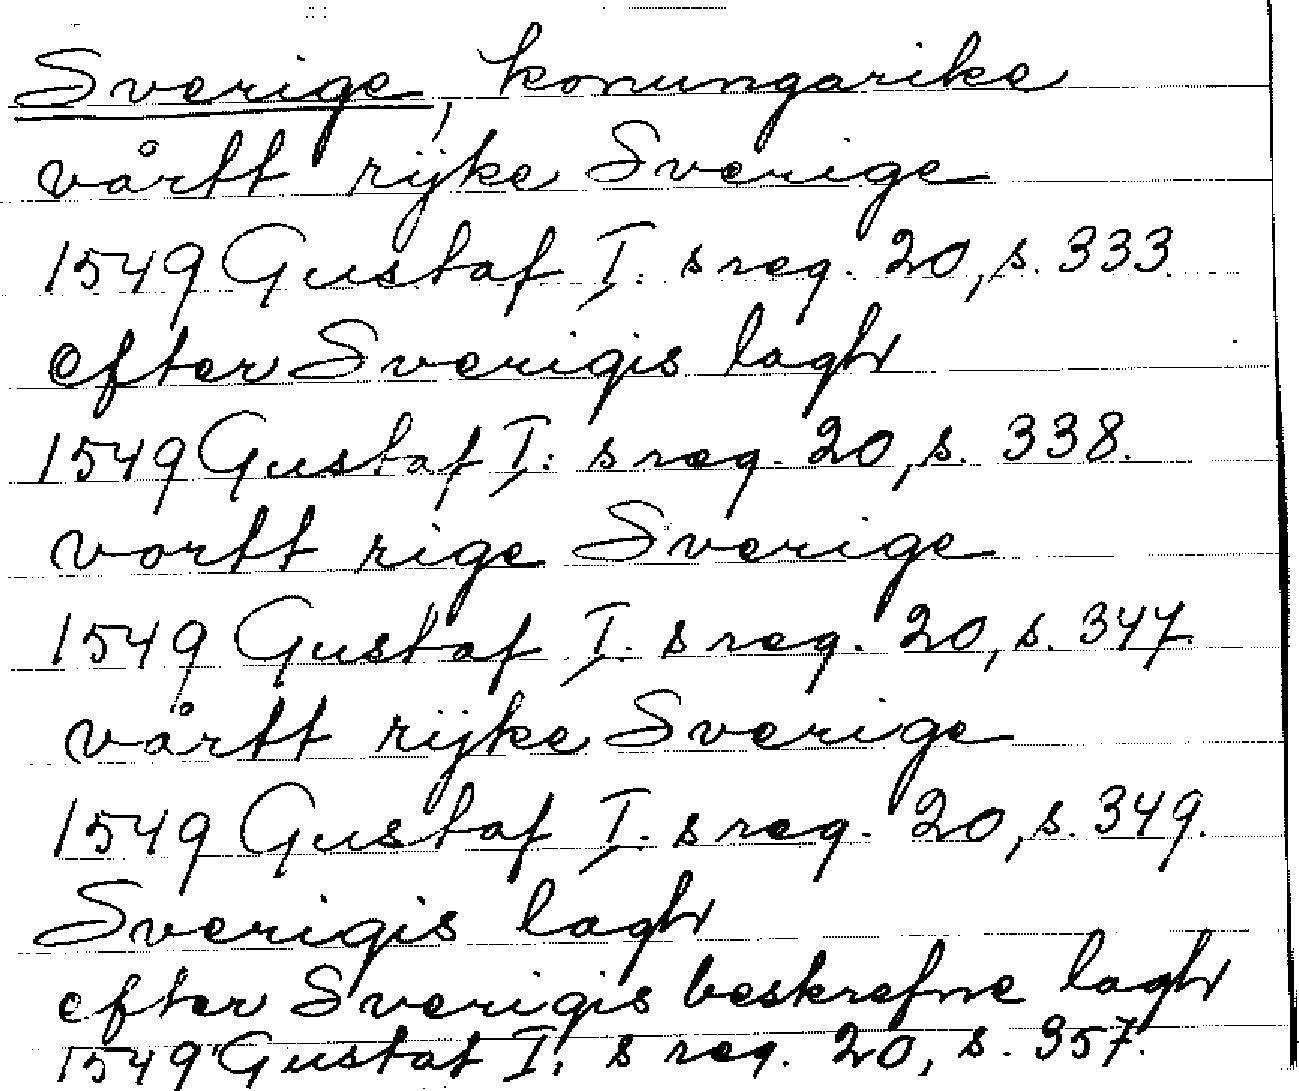 Sverige, konungarike
vårtt rijke Sverige
1549 Gustaf I:s reg. 20, s. 333.
efter Sverigis lagh
1549 Gustaf I:s reg. 20, s. 338.
vortt rige Sverige
1549 Gustaf I:s reg. 20, s. 347.
vårtt rijke Sverige
1549 Gustaf I:s reg. 20, s. 349.
Sverigis lagh
efter Sverigis beskrefne lagh
1549 Gustaf I:s reg. 20, s. 357.